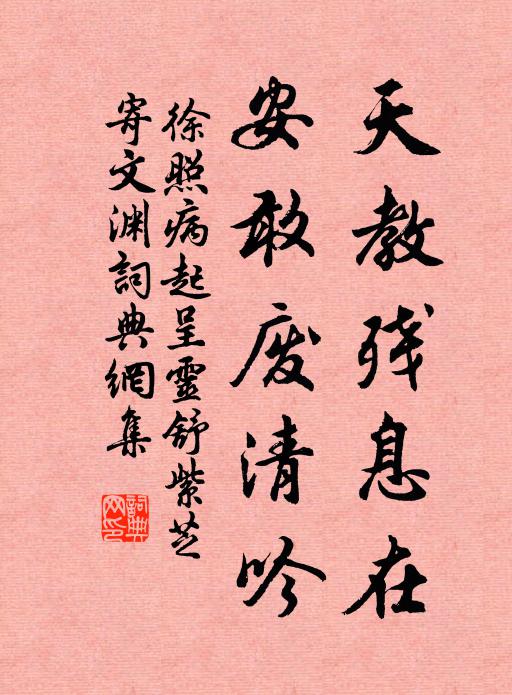 天教残息在
安敢废清吟
徐照病起呈靈舒紫芝
寄文渊詞典網集
詞典
网印